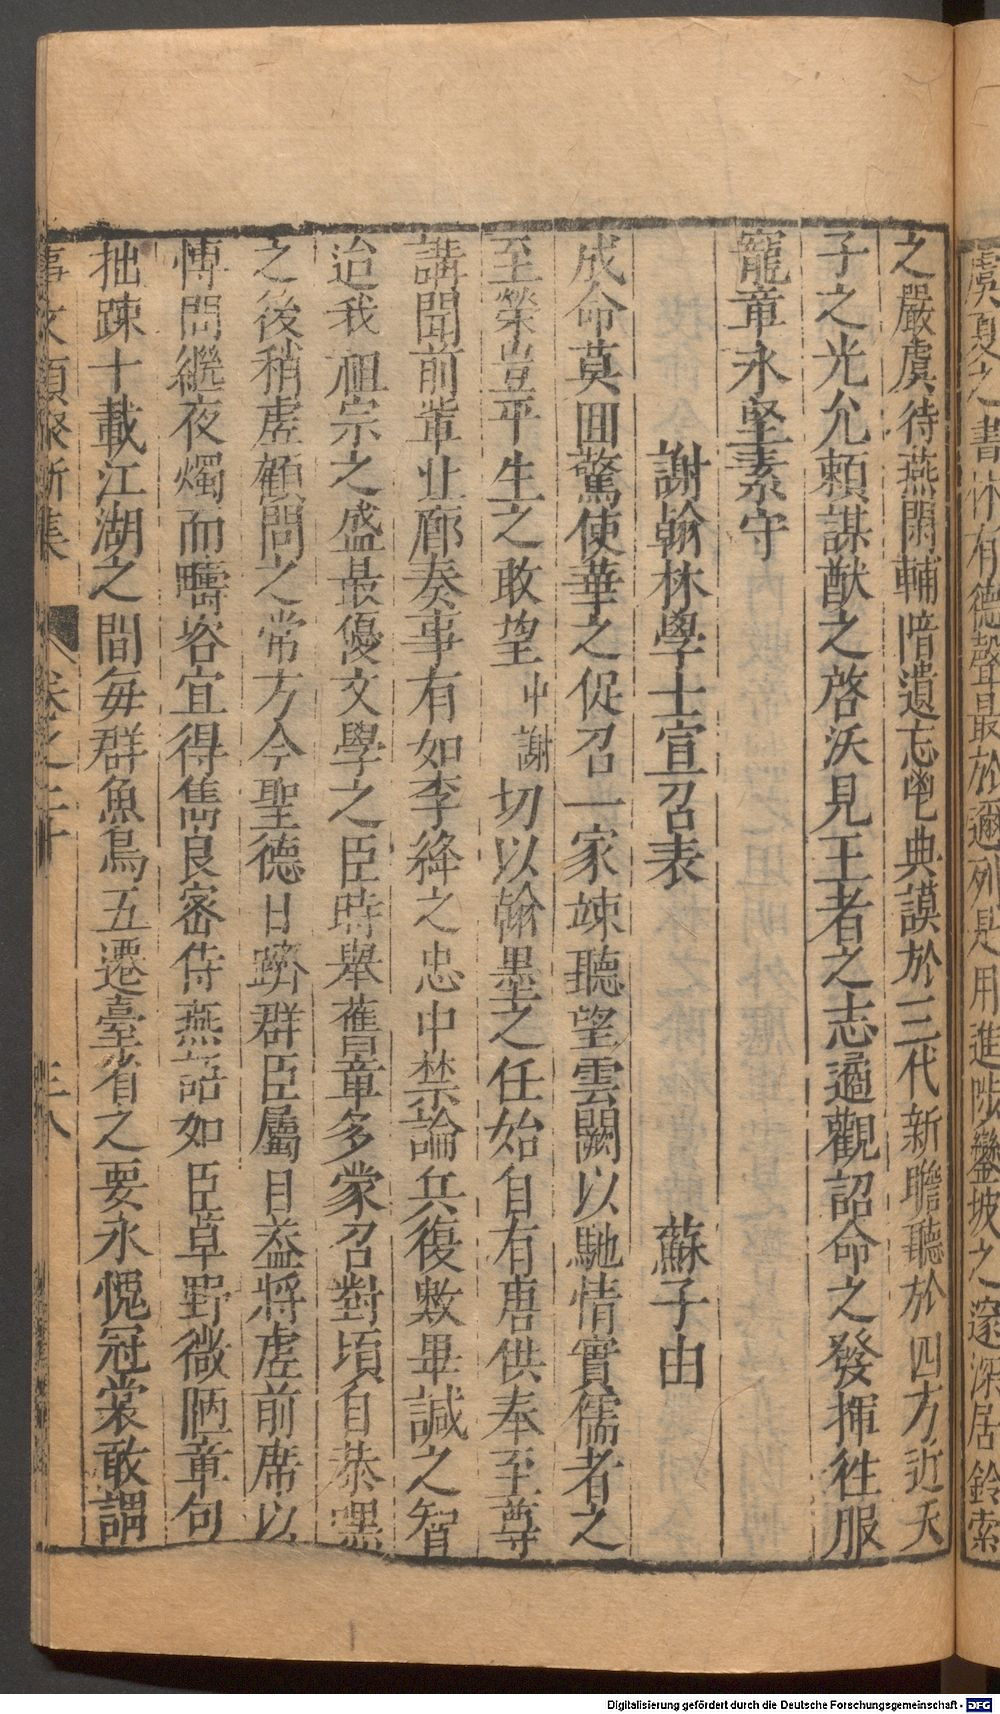 虞夏之書沭有德聲最於邇列是用進陟鑾坡之邃深居鈴索
之嚴虞待燕閑輔暗遺忘鬯典謨於三代新瞻聽於四方近天
子之光允賴謀猷之啓沃見王者之志遹觀詔命之發揮徃服
寵章永堅素守
謝翰林學士宣召表 蘇子由
成命莫囬驚使華之促召一家竦聽望雲闕以馳情實儒者之
至榮豈平生之敢望中謝切以翰墨之任始自有唐供奉至尊
講聞前軰北廊奏事有如李絳之忠中禁論兵復敷畢諴之智
迨我祖宗之盛最優文學之臣時舉舊章多蒙召對頃自恭嘿
之後稍虗顧問之常方今聖德日躋群臣屬目益將虗前席以
愽問繼夜燭而疇咨宜得雋良密侍燕語如臣草野微陋章句
拙踈十載江湖之間每群魚鳥五遷臺省之要永愧冠裳敢謂
事文類聚新集 卷之二十 三十八
Digitalisierung gefördert durch die Deutsche Forschungsgemeinschaft - DFG